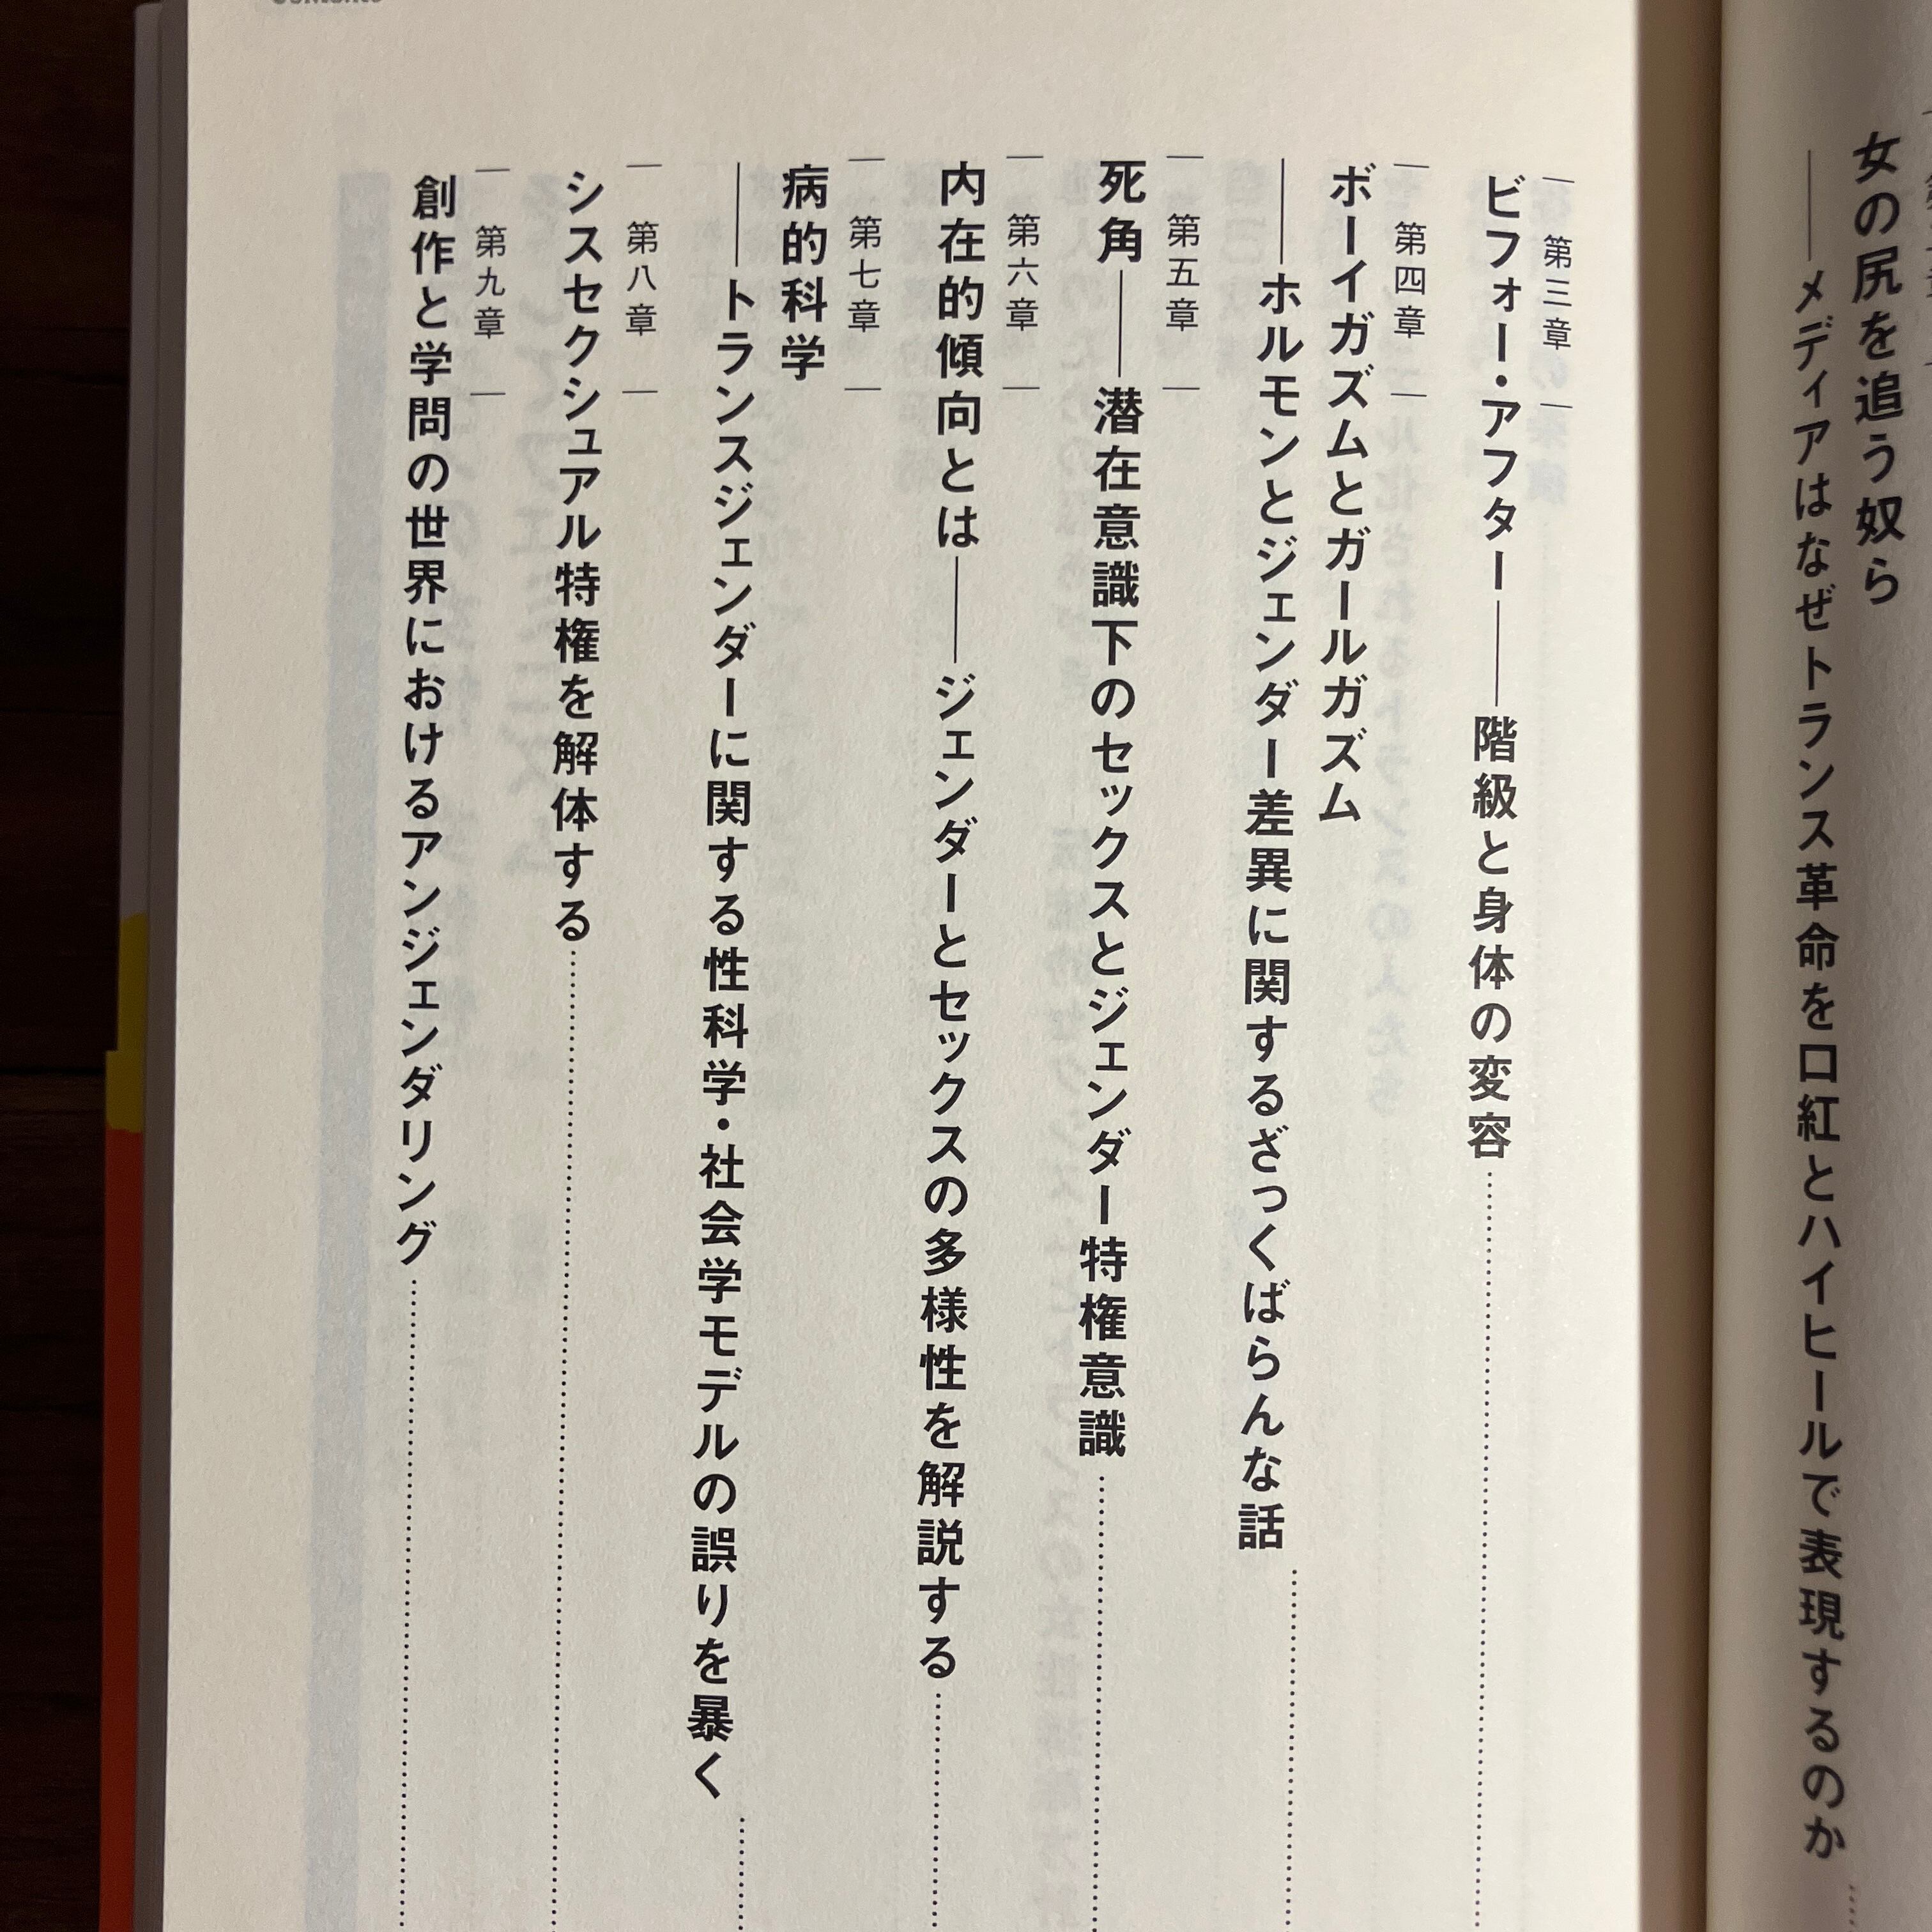 女の尻を追う奴ら
——メディアはなぜトランス革命を口紅とハイヒールで表現するのか
第三章
ビフォー・アフター——階級と身体の変容
第四章
ボーイガズムとガールガズム
——ホルモンとジェンダー差異に関するざっくばらんな話
第五章
死角——潜在意識下のセックスとジェンダー特権意識
第六章
内在的傾向とは——ジェンダーとセックスの多様性を解説する
第七章
病的科学
——トランスジェンダーに関する性科学・社会学モデルの誤りを暴く
第八章
シスセクシュアル特権を解体する
第九章
創作と学問の世界におけるアンジェンダリング